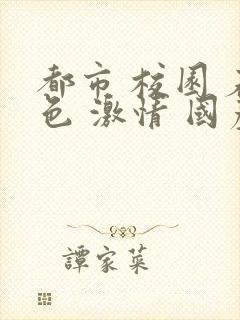 都市校園
色激情國
譚家菜